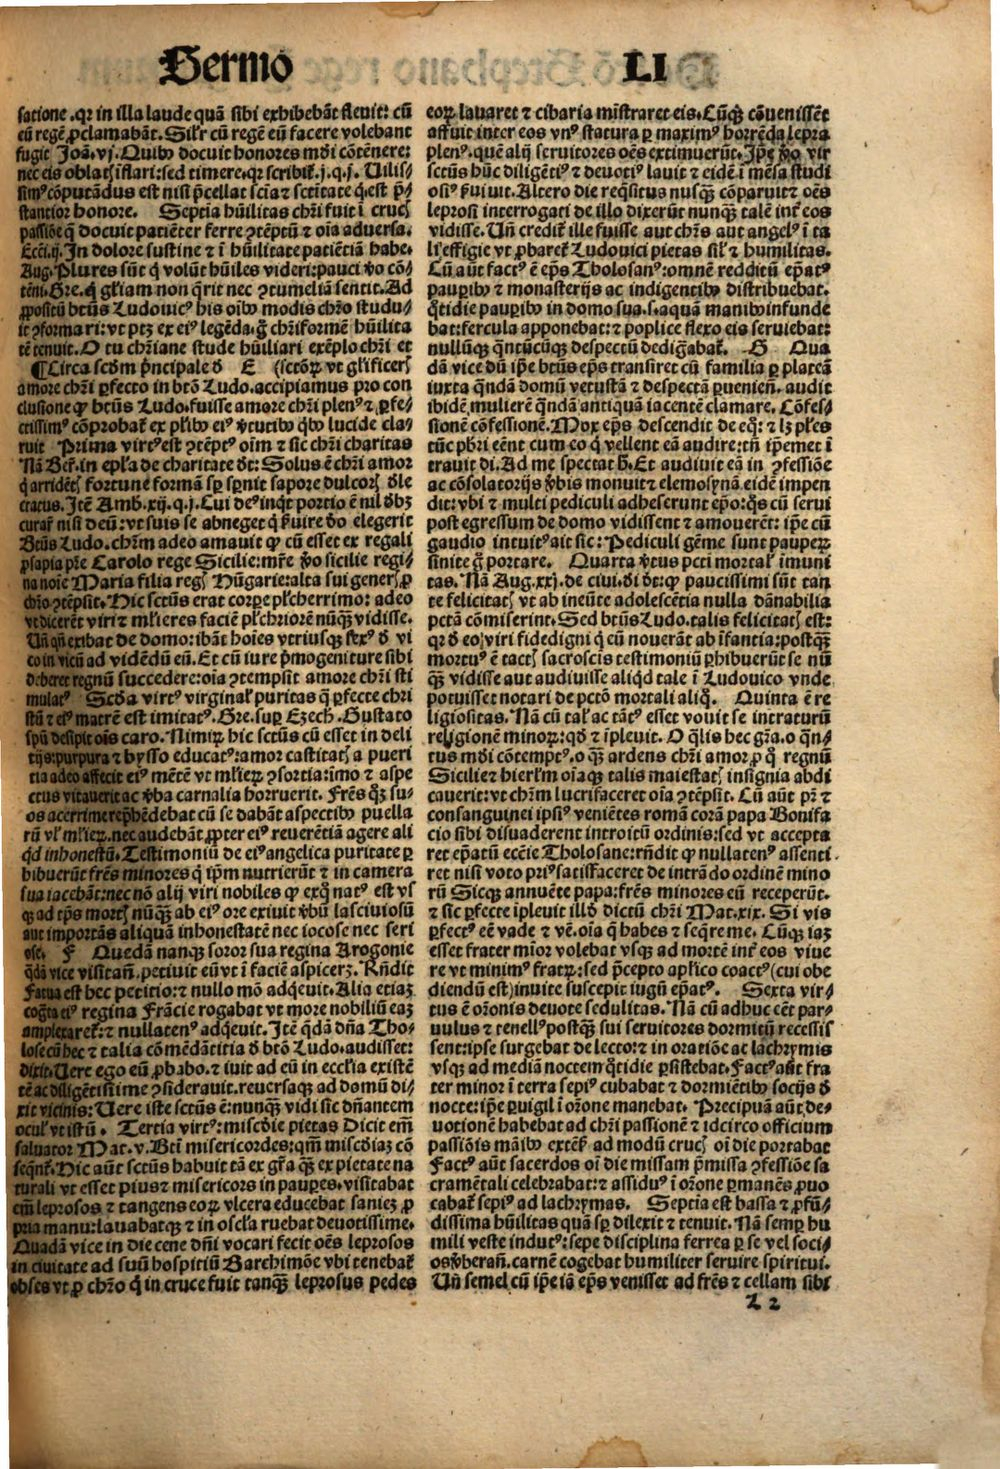 Sermo LI
satione.qr in illa laude quã sibi exhibebãt fleuit: cũ
eũ regẽ ꝓclamabãt. Sil'r cũ regẽ eũ facere volebant
fugit Joã.vj. Quibꝰ docuit honores mũdi cõtẽnere:
nec eis oblatis instari: sed timere. qr scribit᷑.j.q.j. Uilis-
simꝰ cõputãdus est nisi p̃cellat sciẽa ⁊ sctitate q̃ est p̃-
stantior honore. Septia hũilitas chr̃i fuit ĩ cruc
passiõe q̃ docuit patiẽter ferre ꝯtẽptũ ⁊ oĩa aduersa.
Ecci.ij. In dolore sustine ⁊ ĩ hũilitate patiẽtiã habe.
Aug. Plures sũt q̃ volũt hũiles videri: pauci v̓o cõ-
tẽni. Gre. q̃ gl'iam non q̃rit nec ꝯtumeliã sentit. Ad
ꝓpositũ btũs Ludouicꝰ his oĩbꝰ modis chr̃o studu-
it ꝯformari: vt ptꝫ ex eiꝰ legẽda. g̃ chr̃iformẽ hũilita
tẽ tenuit. O tu chr̃iane stude hũiliari exẽplo chr̃i et
¶ Circa scd̃m p̃ncipale d̓ E (sctõꝝ vt glificer
amore chr̃i perfecto in btõ Ludo. accipiamus pro con
clusione ꝙ btũs Ludo. fuisse amore chr̃i plenꝰ ⁊ ꝑfe-
ctissimꝰ cõprobat᷑ ex pl'ibꝰ eiꝰ v̓tutibꝰ q̃bꝰ lucide cla-
ruit Prima virtꝰ est ꝯtẽptꝰ oĩm ⁊ sic chr̃i charitas
Nã Ber. in epl'a de charitate d̓t: Solus ẽ chr̃i amor
q̓ arridẽt fortune formã sp̃ spnit sapore dulcor d̓le
ctatus. Itẽ Amb.xij.q.j. Cui deꝰ inq̃t portio ẽ nil d̓bꝫ
curare nisi deũ: vt suis se abneget q̓ ẜuire d̓o elegerit
Btũs Ludo. chr̃m adeo amauit ꝙ cũ esset ex regali
ꝓsapia pr̃e Carolo rege Sicilie: mr̃e v̓o sicilie regi-
na noĩe Maria filia reg Hũgarie: alta sui gener ꝓ
chr̃o ꝯtẽpsit. Hic sctũs erat corꝑe pl'cherrimo: adeo
vt dicerẽt viri ⁊ ml'ieres faciẽ pl'chriorẽ nũq̃ vidisse.
Un̄ qñ exibat de domo: ibãt hoĩes vtriusq̃ sexꝰ d̓ vi
co in vicũ ad vidẽdũ eũ. Et cũ iure p̃mogeniture sibi
deberet regnũ succedere: oĩa ꝯtempsit amore chr̃i sti
mulatꝰ Scd̃a virtꝰ virginal' puritas q̃ perfecte chri
stũ ⁊ eiꝰ matrẽ est imitatꝰ. Gre. suꝑ Ezech. Gustato
sp̃u desipit oĩs caro. Nimirꝝ hic sctũs cũ esset in deli
tijs: purpura ⁊ bysso educatꝰ: amor castitat a pueri
tia adeo affecit eiꝰ mẽtẽ vt ml'ierꝝ ꝯsortia: ĩmo ⁊ aspe
ctus vitauerit ac v̓ba carnalia horruerit. Frẽs q̃ꝫ su-
os acerrime rep̃hẽdebat cũ se dabãt aspectibꝰ puella
rũ vl' ml'ierꝝ. nec audebãt ꝓpter eiꝰ reuerẽtiã agere ali
q̓d inhonestũ. Testimoniũ de eiꝰ angelica puritate ꝑ
hibuerũt frẽs minores q̃ ip̃m nutrierũt ⁊ in camera
sua iacebãt: nec nõ alij viri nobiles q̃ ex q̃ natꝰ est vs
q̃ ad tp̃s mort nũq̃ ab eiꝰ ore exiuit v̓bũ lasciuiosũ
aut importãs aliquã inhonestatẽ nec iocose nec seri
ose. F Quedã nanq̃ soror sua regina Arogonie
q̃dã vice visitañ. petiuit eũ vt ĩ faciẽ aspicerꝫ. Rñdit
Fatua est hec petitio: ⁊ nullo mõ adq̃euit. Alia etiaꝫ
cog̃ta eiꝰ regina Frãcie rogabat vt more nobiliũ eaꝫ
amplexaret᷑: ⁊ nullatenꝰ adq̃euit. Itẽ q̃dã dñ̃a Tho-
lose cũ hec ⁊ talia cõmẽdãtitia d̓ btõ Ludo. audisset:
dixit. Uere ego eũ ꝓbabo. ⁊ iuit ad eũ in ecclĩa existẽ
tẽ ac diligẽtissime ꝯsiderauit. reuersaq̃ ad domũ di-
xit vicinis: Uere iste sctũs ẽ: nunq̃ vidi sic dñantem
oculꝰ vt istũ. Tertia virtꝰ: misc̃die pietas Dicit em̃
saluator Mat.v. Bt̃i misericordes: qm̃ misc̃diaꝫ cõ
seqñt᷑. Hic aũt sctũs habuit tã ex gr̃a q̃ꝫ ex pietate na
turali vt esset pius ⁊ misericors in pauꝑes. visitabat
em̃ leprosos ⁊ tangens eoꝝ vlcera educebat saniez ꝓ
pria manu: lauabatq̃ ⁊ in oscl'a ruebat deuotissime.
Quadã vice in die cene dñi vocari fecit oẽs leprosos
in ciuitate ad suũ hospitiũ Barchinõe vbi tenebat᷑
obses vt ꝓ chr̃o q̓ in cruce fuit tanq̃ leprosus pedes
eoꝝ lauaret ⁊ cibaria mĩstraret eis. Cũq̃ cõuenissẽt
affuit inter eos vnꝰ statura ꝑ maximꝰ horrẽda lepra
plenꝰ. quẽ alij seruitores oẽs extimuerũt. Ip̃e v̓o vir
sctũs hũc diligẽtiꝰ ⁊ deuotiꝰ lauit ⁊ eidẽ ĩ mẽsa studi
osiꝰ ẜuiuit. Altero die req̃situs nusq̃ cõparuit ⁊ oẽs
leprosi interrogati de illo dixerũt nunq̃ talẽ int̓ eos
vidisse. Uñ credit᷑ ille fuisse aut chr̃s aut angelꝰ ĩ ta
li effigie vt ꝓbaret᷑ Ludouici pietas sil' ⁊ humilitas.
Cũ aũt factꝰ ẽ ep̃s Tholosanꝰ: omnẽ redditũ ep̃atꝰ
pauꝑibꝰ ⁊ monasterijs ac indigentibꝰ distribuebat.
q̃tidie pauꝑibꝰ in domo sua.s. aquã manibꝰ infunde
bat: fercula apponebat: ⁊ poplice flexo eis seruiebat:
nullũq̃ q̃ntũcũq̃ despectũ dedig̃abat᷑. G Qua
dã vice dũ ip̃e btũs ep̃s transiret cũ familia ꝑ plateã
iuxta q̃ndã domũ vetustã ⁊ despectã ꝑuenieñ. audit
ibidẽ mulierẽ q̃ndã antiquã iacentẽ clamare. Cõfes-
sionẽ cõfessionẽ. Mox ep̃s descendit de eq̃: ⁊ lꝫ pl'es
tũc pb̃ri eẽnt cum eo q̃ vellent eã audire: tñ ip̃emet ĩ
trauit di. Ad me spectat h̓. Et audiuit eã in ꝯfessiõe
ac cõsolatorijs v̓bis monuit ⁊ elemosynã eidẽ impen
dit: vbi ⁊ multi pediculi adheserunt ep̃o: q̃s cũ serui
post egressum de domo vidissent ⁊ amouerẽt: ip̃e cũ
gaudio intuitꝰ ait sic: Pediculi gẽme sunt pauperꝝ
sinite g̃ portare. Quarta v̓tus pcti mortal' ĩmuni
tas. Nã Aug.xxj. de ciui. d̓i d̓t: ꝙ paucissimi sũt tan
te felicitat vt ab ineũte adolescẽtia nulla dãnabilia
pctã cõmiserint. Sed btũs Ludo. talis felicitat est:
qr d̓ eo viri fidedigni q̓ cũ nouerãt ab ĩfantia: postq̃
mortuꝰ ẽ tact sacroscis testimoniũ ꝑhibuerũt se nũ
q̃ vidisse aut audiuisse aliq̃d tale ĩ Ludouico vnde
potuisset notari de pctõ mortali aliq̃. Quinta ẽ re
ligiositas. Nã cũ tal' ac tãtꝰ esset vouit se intraturũ
religionẽ minoꝝ: qd̓ ⁊ ĩpleuit. O q̃lis hec gr̃a. o q̃n-
tus mũdi cõtemptꝰ. o q̃ꝫ ardens chr̃i amor ꝓ q̃ regnũ
Sicilie ⁊ hierl'm oĩaq̃ talis maiestat insignia abdi
cauerit: vt chr̃m lucrifaceret oĩa ꝯtẽpsit. Cũ aũt pr̃ ⁊
consanguinei ipsiꝰ veniẽtes romã corã papa Bonifa
cio sibi dissuaderent introitũ ordinis: sed vt accepta
ret ep̃atũ eccẽie Tholosane: rñdit ꝙ nullatenꝰ assenti
ret nisi voto priꝰ satisfaceret de intrãdo ordinẽ mino
rũ Sicq̃ annuẽte papa: frẽs minores eũ receperũt.
⁊ sic ꝑfecte ĩpleuit illd̓ dictũ chr̃i Mat.xix. Si vis
ꝑfectꝰ eẽ vade ⁊ vẽ. oĩa q̃ habes ⁊ seq̃re me. Cũq̃ iaꝫ
esset frater mĩor volebat vsq̃ ad mortẽ int̓ eos viue
re vt minimꝰ fratꝝ: sed p̃cepto apl'ico coactꝰ (cui obe
diendũ est) inuite suscepit iugũ ep̃atꝰ. Sexta vir-
tus ẽ orõnis deuote sedulitas. Nã cũ adhuc eẽt par-
uulus ⁊ tenellꝰ postq̃ sui seruitores dormitũ recessis
sent: ipse surgebat de lecto: ⁊ in oratiõe ac lachrymis
vsq̃ ad mediam noctem q̃tidie ꝑsistebat. Factꝰ aũt fra
ter minor ĩ terra sepiꝰ cubabat ⁊ dormiẽtibꝰ socijs d̓
nocte: ip̃e ꝑuigil ĩ orõne manebat. Precipuã aũt de-
uotionẽ habebat ad chr̃i passionẽ ⁊ idcirco officium
passiõis mãibꝰ extẽs ad modũ cruc oĩ die portabat
Factꝰ aũt sacerdos oĩ die missam p̃missa ꝯfessiõe sa
cramẽtali celebrabat: ⁊ assiduꝰ ĩ orõne ꝑmanẽs ꝓuo
cabat᷑ sepiꝰ ad lachrymas. Septia est bassa ⁊ ꝓfũ-
dissima hũilitas quã sp̃ dilexit ⁊ tenuit. Nã semꝑ hu
mili veste indutꝰ: sepe disciplina ferrea ꝑ se vel soci-
os v̓berañ. carnẽ cogebat humiliter seruire spiritui.
Uñ semel cũ ip̃e iã ep̃s venisset ad frẽs ⁊ cellam sibi
L 2